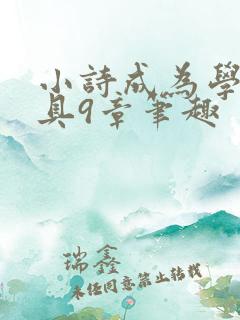 小詩成為學
具9章筆趣
瑞鑫
未經同意禁止轉載